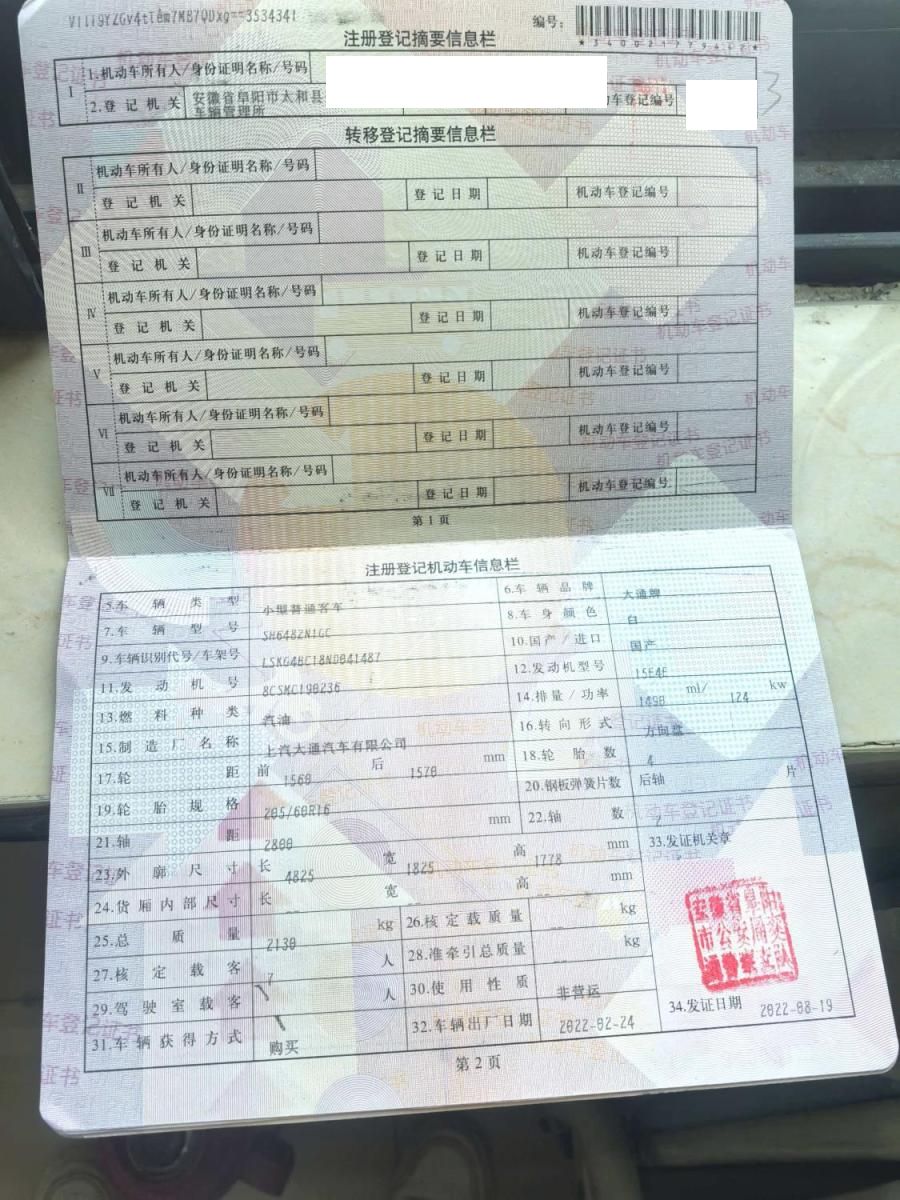 V1119YZGV4tTem7MB7QDxg==3534341
编号:
*340021779462*
注册登记摘要信息栏
I 1.机动车所有人/身份证明名称/号码
2.登记机关 安徽省阜阳市太和县车辆管理所 车登记编号 3
转移登记摘要信息栏
II 机动车所有人/身份证明名称/号码
登记机关 登记日期 机动车登记编号
III 机动车所有人/身份证明名称/号码
登记机关 登记日期 机动车登记编号
IV 机动车所有人/身份证明名称/号码
登记机关 登记日期 机动车登记编号
V 机动车所有人/身份证明名称/号码
登记机关 登记日期 机动车登记编号
VI 机动车所有人/身份证明名称/号码
登记机关 登记日期 机动车登记编号
VII 机动车所有人/身份证明名称/号码
登记机关 登记日期 机动车登记编号
第1页
注册登记机动车信息栏
5.车辆类型 小型普通客车 6.车辆品牌 大通牌
7.车辆型号 SH6482N1GC 8.车身颜色 白
9.车辆识别代号/车架号 LSKG4BC18ND041487 10.国产/进口 国产
11.发动机号 8CSMC190236 12.发动机型号 15E4E
13.燃料种类 汽油 14.排量/功率 1490 ml/ 124 kw
15.制造厂名称 上汽大通汽车有限公司 16.转向形式 方向盘
17.轮距 前 1560 后 1570 mm 18.轮胎数 4
19.轮胎规格 205/60R16 20.钢板弹簧片数 后轴 片
21.轴距 2800 mm 22.轴数 2
23.外廓尺寸 长 4825 宽 1825 高 1778 mm 33.发证机关章
24.货厢内部尺寸 长 -- 宽 -- 高 -- mm
25.总质量 2130 kg 26.核定载质量 -- kg
27.核定载客 7 人 28.准牵引总质量 -- kg
29.驾驶室载客 人 30.使用性质 非营运
31.车辆获得方式 购买 32.车辆出厂日期 2022-02-24
安徽省阜阳市公安局交通警察支队
34.发证日期 2022-08-19
第2页